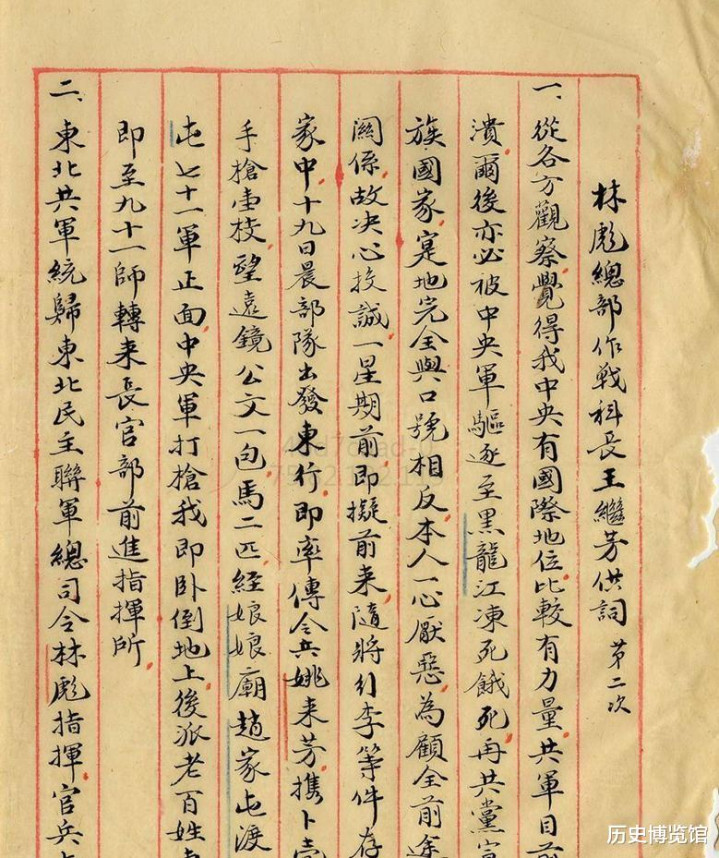 林彪總部作戰科長王繼芳供詞 第二次
一、從各方觀察覺得我中央有國際地位比較有力量共軍目前
潰爾後亦必被中央軍驅逐至黑龍江凍死餓死再共黨宣
族國家寔地完全與口號相反本人一心厭惡為顧全前途
關係故决心投誠一星期前即擬前来隨將行李等件存
家中十九日晨部隊出發東行即率傳令兵姚来芳携卜壳
手槍壹枝望遠鏡公文一包馬二匹經娘娘廟趙家屯渡
屯七十一軍正面中央軍打槍我即卧倒地上後派老百姓
即至九十一師轉来長官部前進指揮所
二、東北共軍統歸東北民主聯軍總司令林彪指揮官兵
历史博览馆